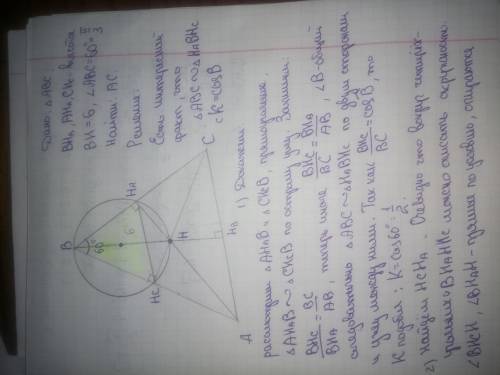 Дано: △ABC,
BHA, AHA, CHC - высоты
BH = 6, ∠ABC = 60° = π/3
Найти: AC.
Решение:
Есть интересный
факт, что
△ABC ∼ △HABHC
с k = cosB
B
60°
6
HA
HC
H
C
HB
A
1) Докажем
рассмотрим △AHAB и △CHCB, прямоугольные.
△AHAB ∼ △CHCB по острому углу. Запишем:
BHC/BHA = BC/AB, теперь иначе BHC/BC = BHA/AB, ∠B - общий
следовательно △ABC ∼ △HABHC по двум сторонам
и углу между ними. Так как BHC/BC = cosB, то
K подобия: K = cos60° = 1/2.
2) Найдём HCHA. Очевидно что вокруг четырёх-
угольника BHAHHC можно описать окружность.
∠BHCH, ∠BHAH - прямые по условию, опираются